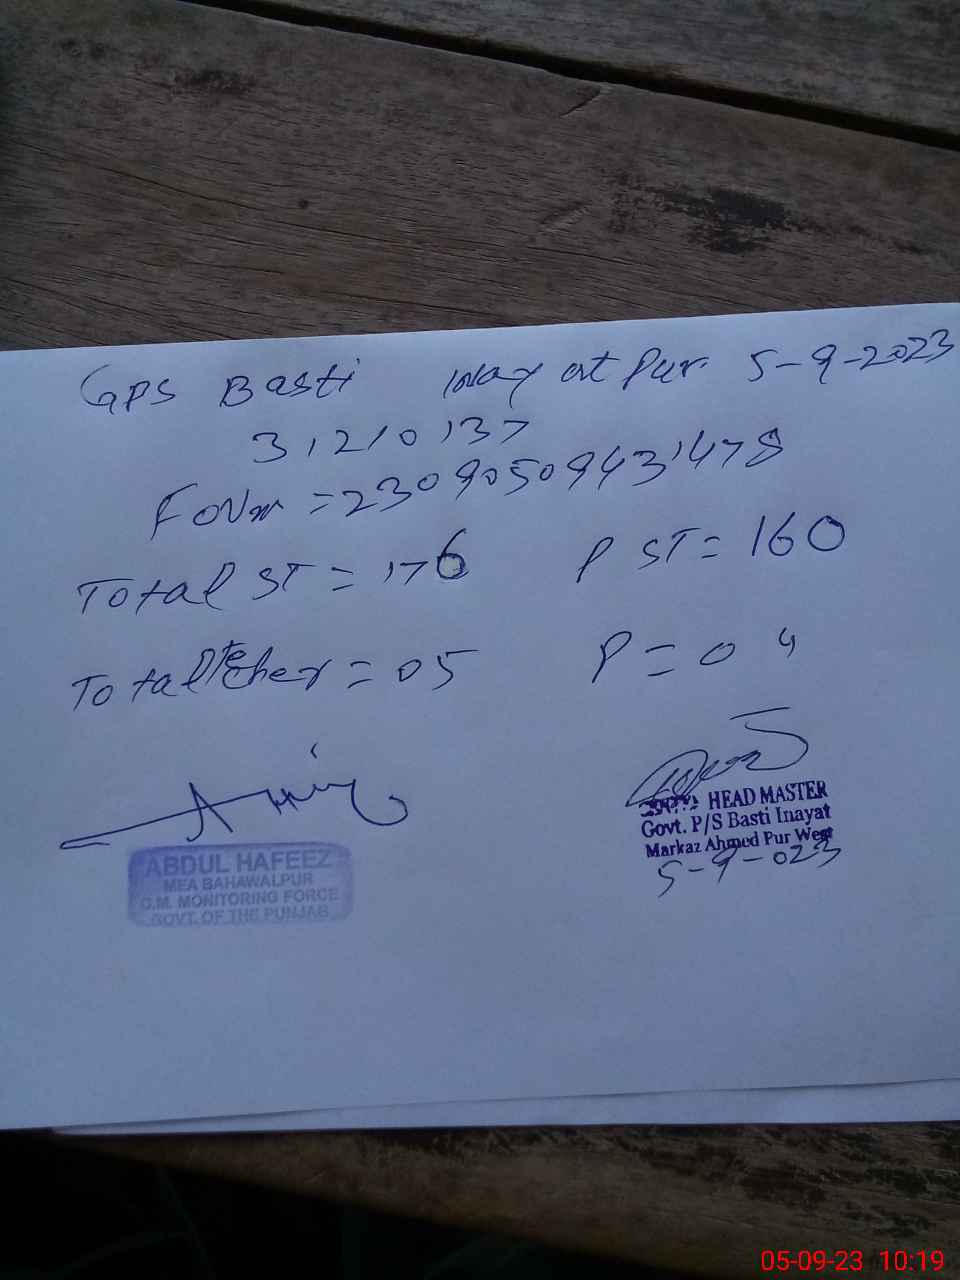 GPS Basti Inayat Pur. 5-9-2023
31210137
Form = 23090509431478
Total ST = 176 P ST = 160
Total Tcher = 05 P = 04
ABDUL HAFEEZ
MEA BAHAWALPUR
C.M. MONITORING FORCE
GOVT. OF THE PUNJAB
HEAD MASTER
Govt. P/S Basti Inayat
Markaz Ahmed Pur West
5-9-023
05-09-23 10:19